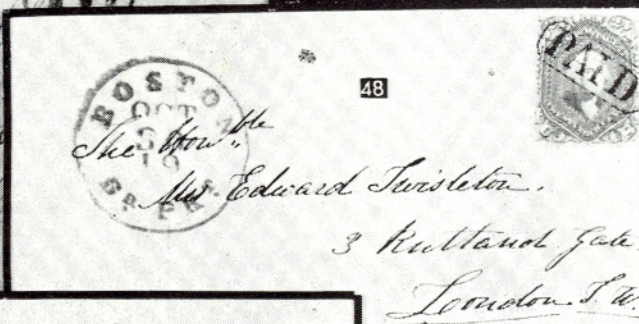 PAID
48
BOSTON
OCT
BR. PKT.
The Honble
Mrs Edward Twisleton.
3 Rutland Gate.
London S.W.